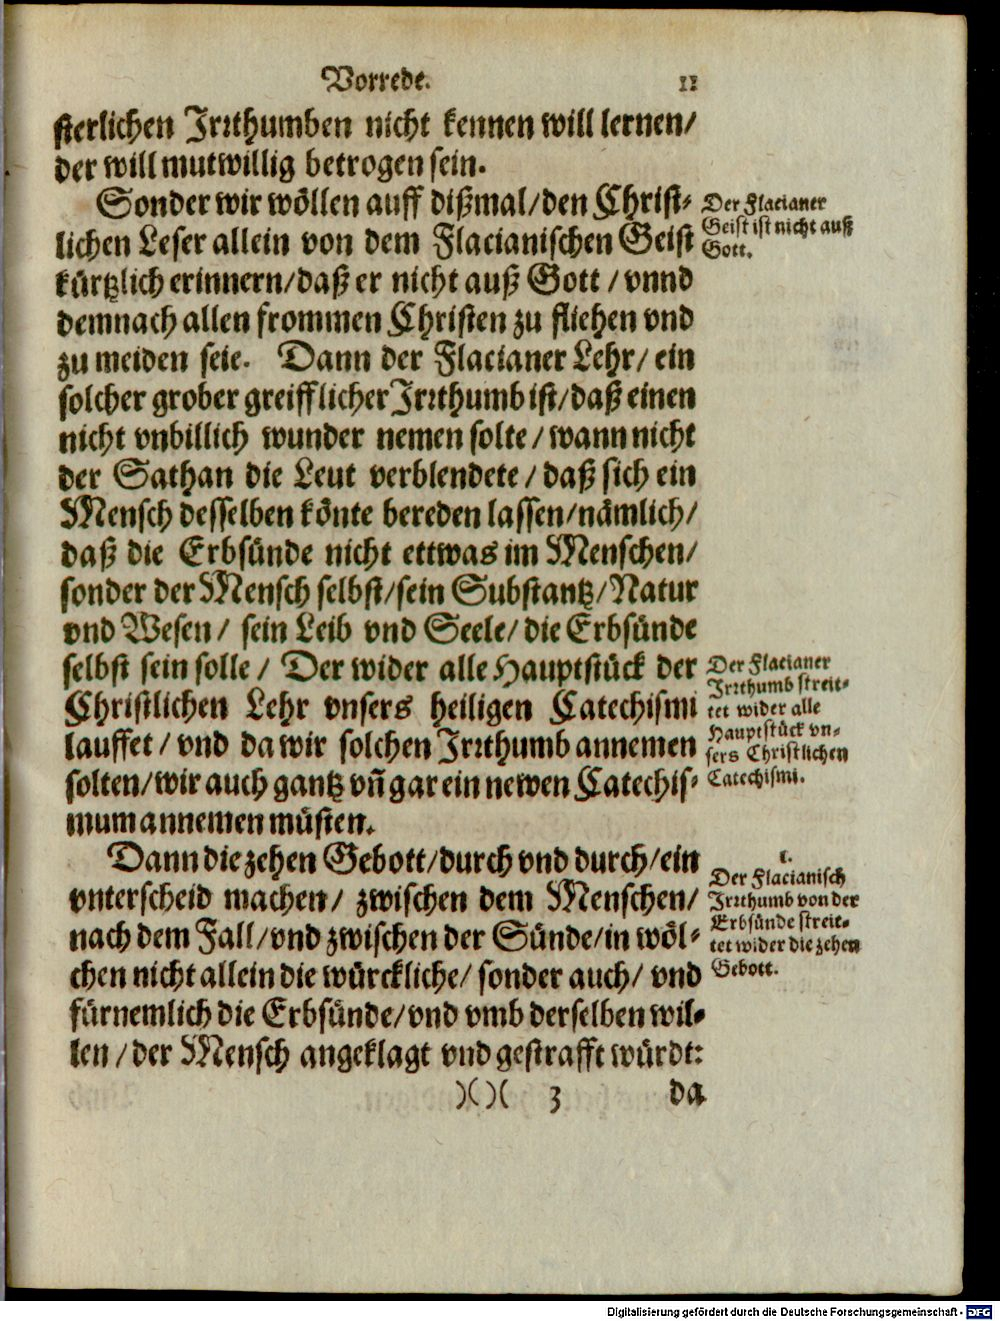 Vorrede. 11
sterlichen Irrthumben nicht kennen will lernen/
der will mutwillig betrogen sein.
Sonder wir wöllen auff dißmal/den Christ-
lichen Leser allein von dem Flacianischen Geist
kürtzlich erinnern/daß er nicht auß Gott / vnnd
demnach allen frommen Christen zu fliehen vnd
zu meiden seie. Dann der Flacianer Lehr/ ein
solcher grober greifflicher Irrthumb ist/daß einen
nicht vnbillich wunder nemen solte / wann nicht
der Sathan die Leut verblendete / daß sich ein
Mensch desselben könte bereden lassen/nämlich/
daß die Erbsünde nicht ettwas im Menschen/
sonder der Mensch selbst/sein Substantz/Natur
vnd Wesen/ sein Leib vnd Seele/ die Erbsünde
selbst sein solle / Der wider alle Hauptstück der
Christlichen Lehr vnsers heiligen Catechismi
lauffet / vnd da wir solchen Irrthumb annemen
solten/wir auch gantz vñ gar ein newen Catechis-
mum annemen müsten.
Dann die zehen Gebott/durch vnd durch/ein
vnterscheid machen/ zwischen dem Menschen/
nach dem Fall/vnd zwischen der Sünde/in wöl-
chen nicht allein die würckliche/ sonder auch/ vnd
fürnemlich die Erbsünde/vnd vmb derselben wil-
len / der Mensch angeklagt vnd gestrafft würdt:
)( )( 3 da
Der Flacianer
Geist ist nicht auß
Gott.
Der Flacianer
Irrthumb streit-
tet wider alle
Hauptstück vn-
sers Christlichen
Catechismi.
1.
Der Flacianisch
Irrthumb von der
Erbsünde streit-
tet wider die zehen
Gebott.
Digitalisierung gefördert durch die Deutsche Forschungsgemeinschaft - DFG